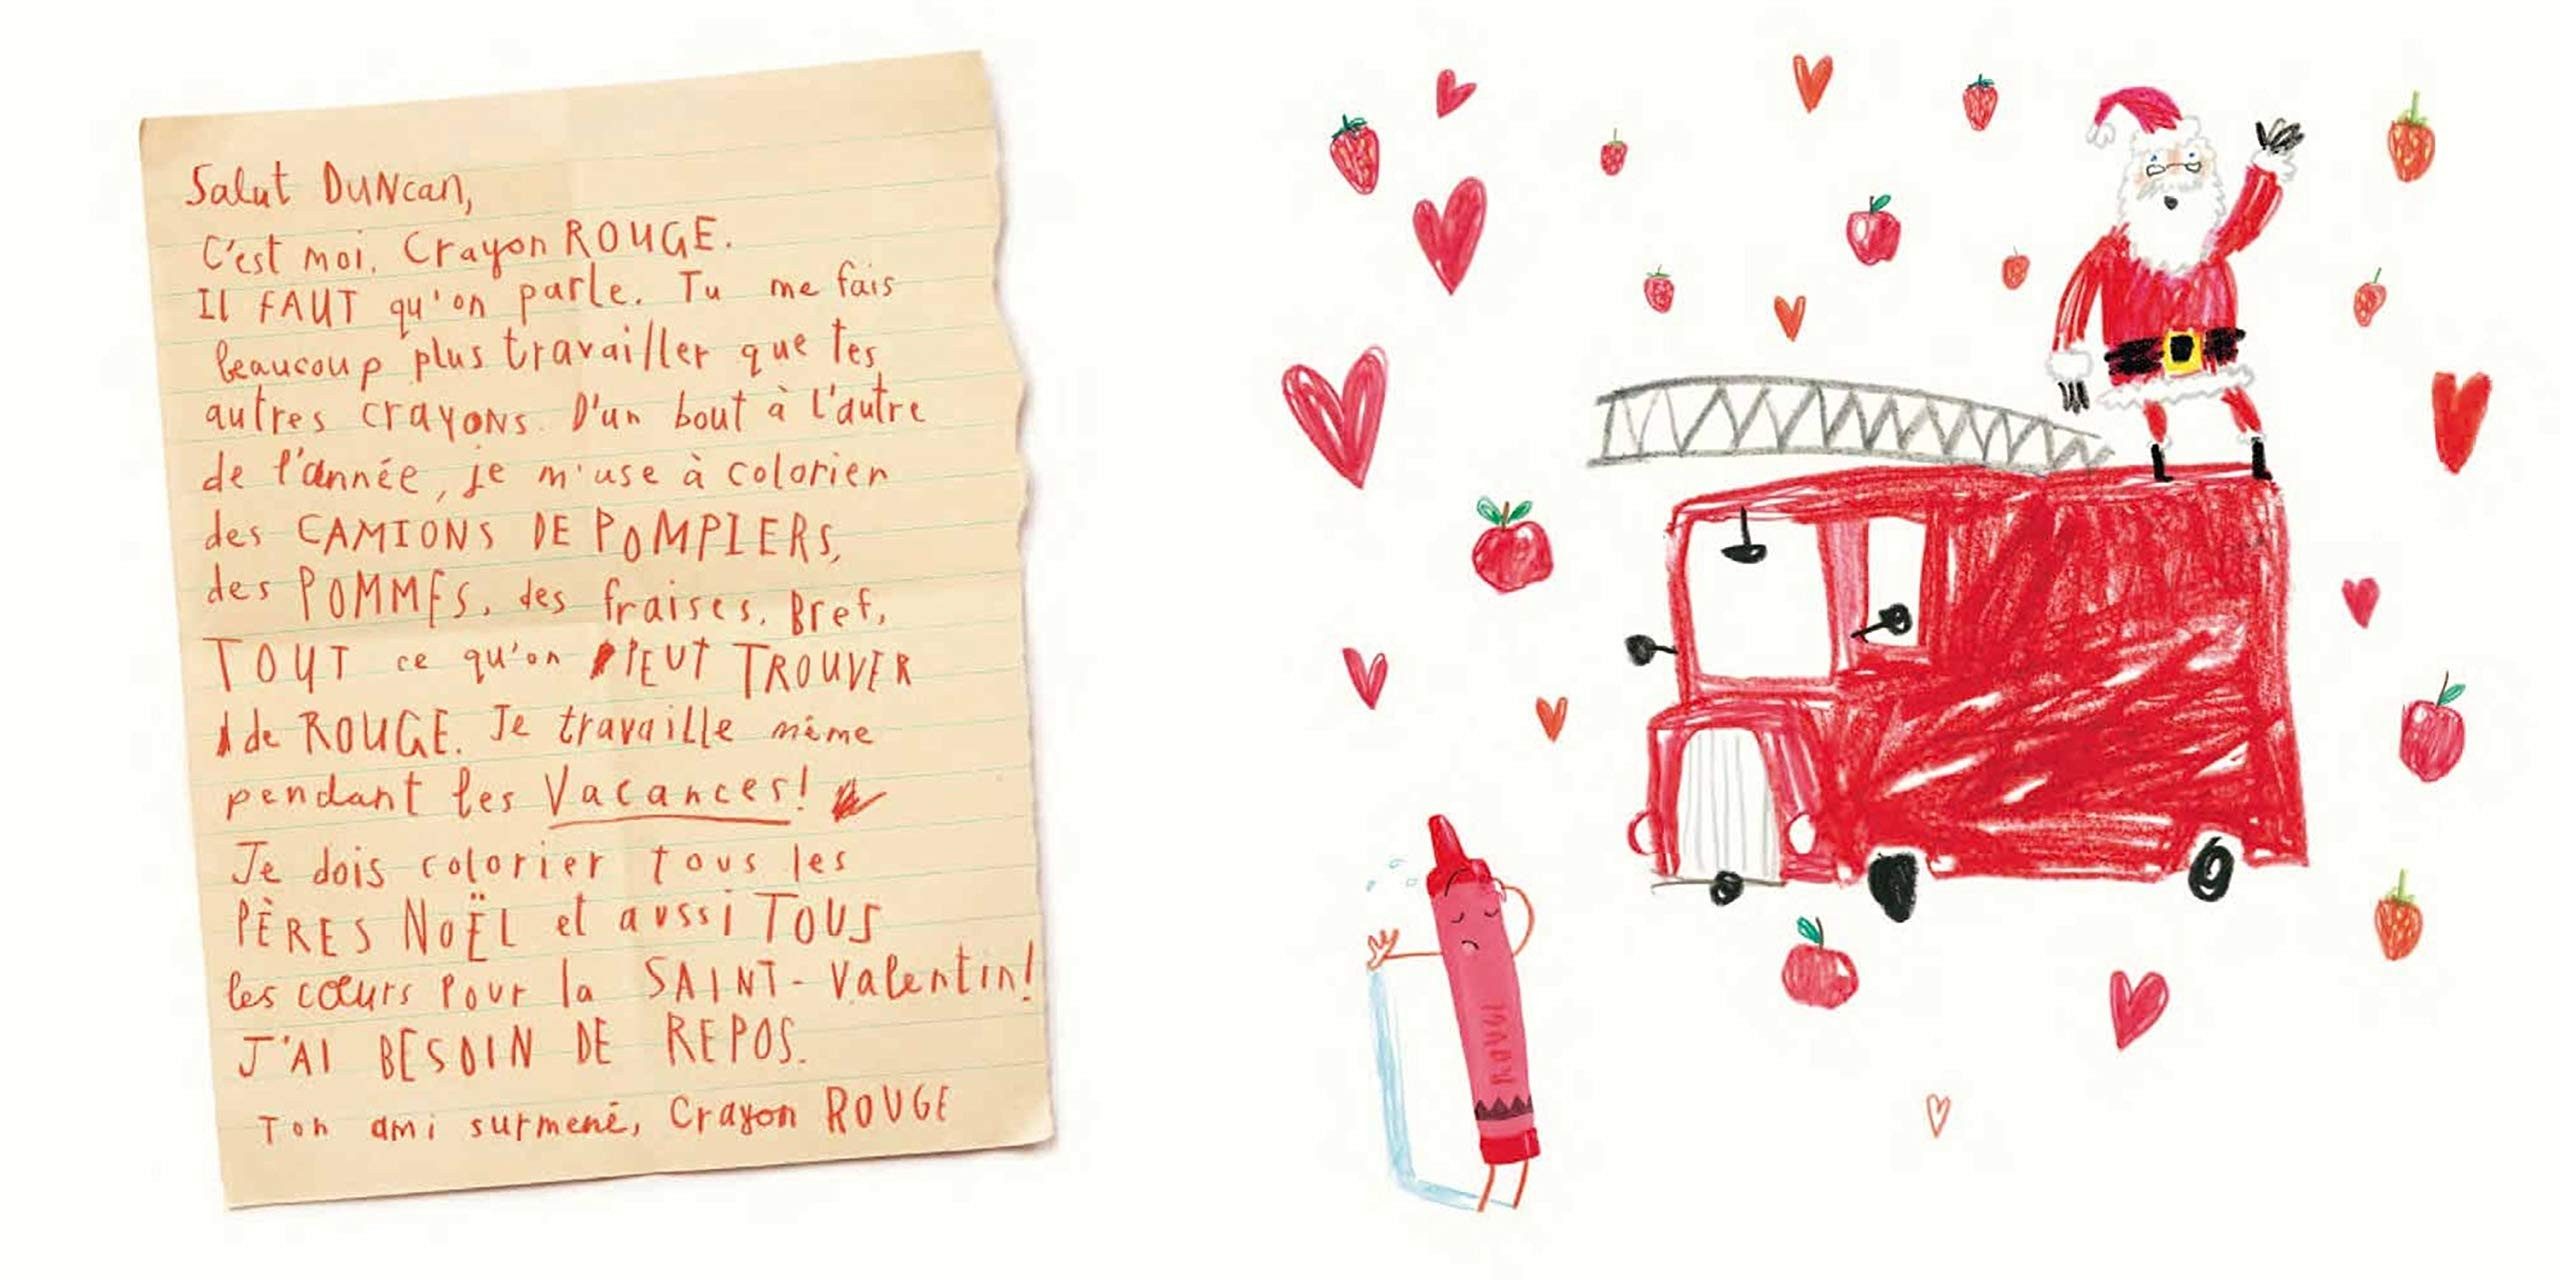 Salut DUNcan,
C'est moi, Crayon ROUGE.
Il FAUT qu'on parle. Tu me fais
beaucoup plus travailler que tes
autres crayons. D'un bout à l'autre
de l'année, je m'use à colorier
des CAMIONS DE POMPIERS,
des POMMES, des fraises. Bref,
TOUT ce qu'on PEUT TROUVER
de ROUGE. Je travaille même
pendant les Vacances!
Je dois colorier tous les
PÈRES NOËL et aussi TOUS
les cœurs pour la SAINT-Valentin!
J'AI BESOIN DE REPOS.
Ton ami surmené, Crayon ROUGE
ROUGE